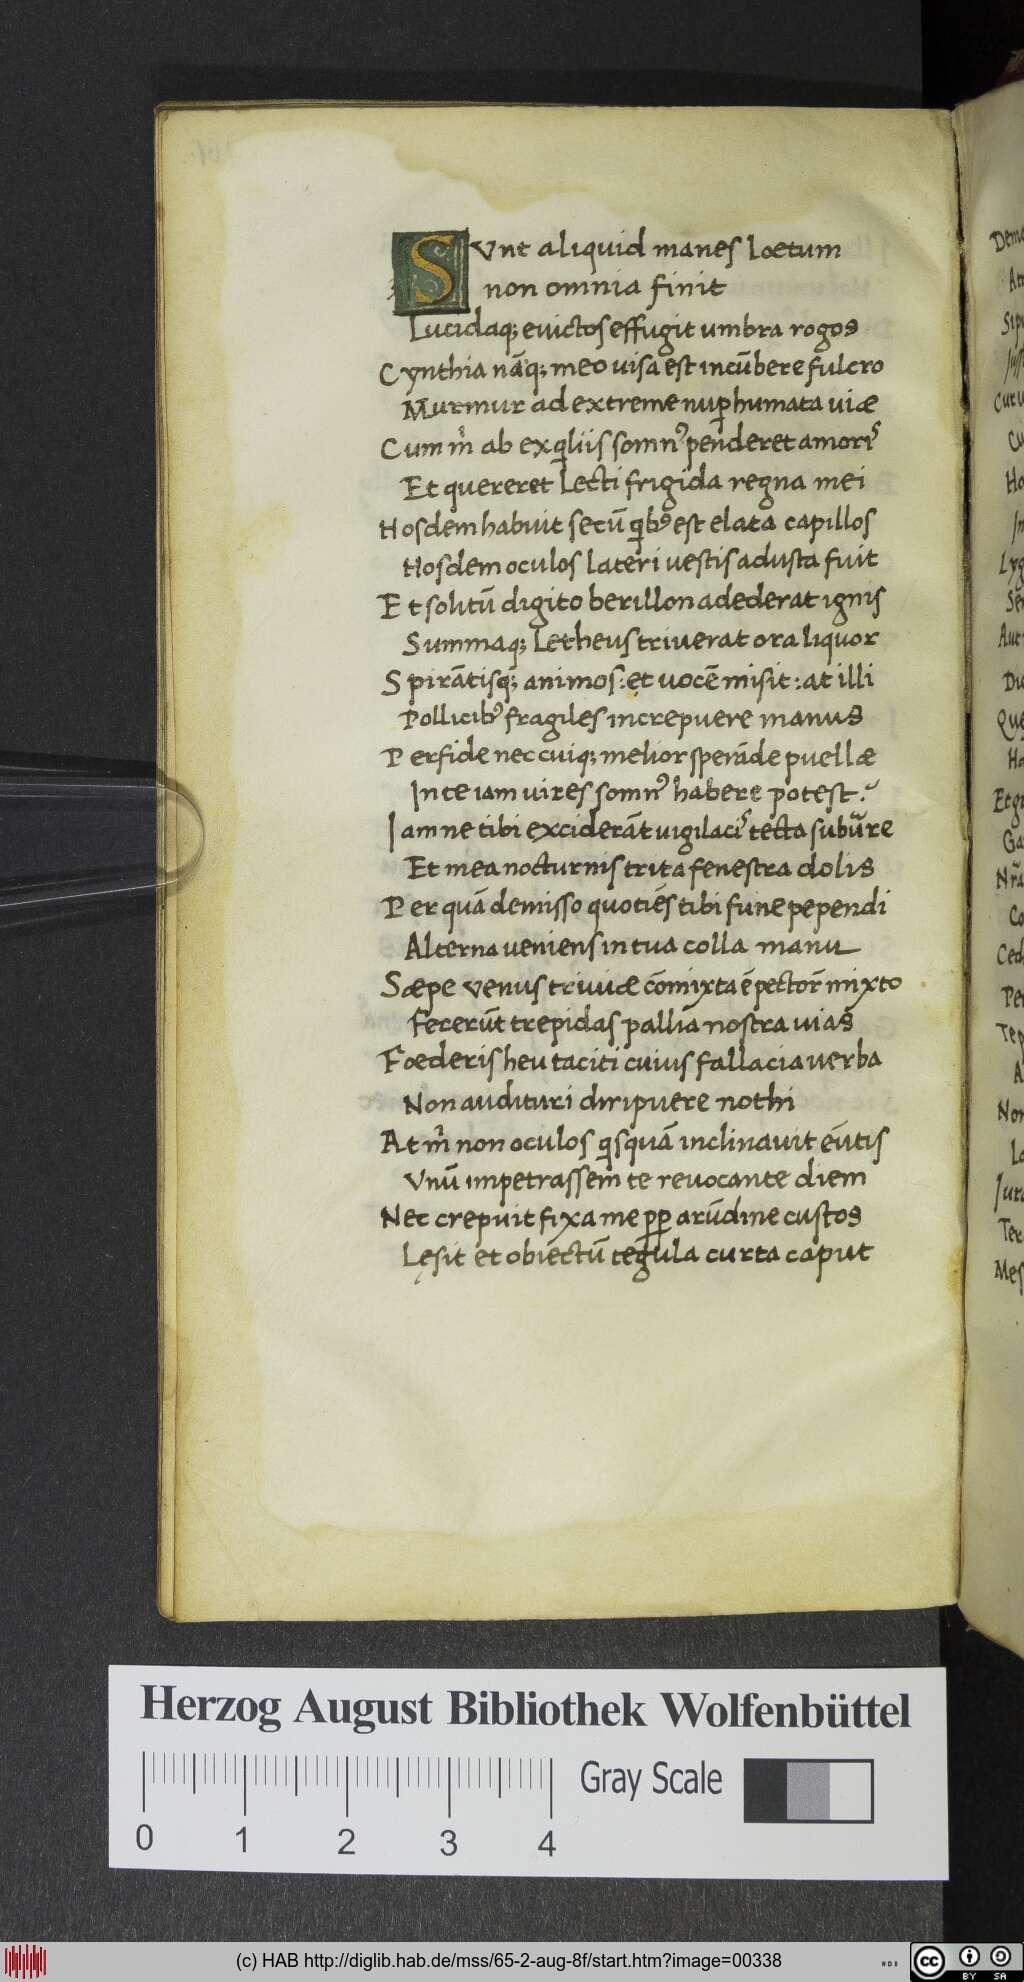 SVnt aliquid manes lœtum
non omnia finit
Lucidaq; euictos effugit umbra rogos
Cynthia nãq; meo uisa est incũbere fulcro
Murmur ad extreme nup̱ humata uiæ
Cum m̃ ab exq̱liis somnꝰ penderet amorı̑s
Et quereret lecti frigida regna mei
Hosdem habuit secũ q̱bꝰ est elata capillos
Hosdem oculos lateri uestis adusta fuit
Et solitũ digito berillon adederat ignis
Summaq; letheus triuerat ora liquor
Spirãtisq; animos: et uocẽ misit: at illi
Pollicibꝰ fragiles increpuere manus
Perfide nec cuiq; melior sperãde puellæ
In te iam uires somnꝰ habere potest?
Iamne tibi exciderãt uigilacıˢ tecta subũre
Et mea nocturnis trita fenestra dolis
Per quã demisso quotiẽs tibi fune pependi
Alterna ueniens in tua colla manu
Sæpe venus triuiæ cõmixta ẽ pector̃ mixto
Fecerũt trepidas pallia nostra uias
Fœderis heu taciti cuius fallacia uerba
Non audituri diripuere nothi
At m̃ non oculos q̱squã inclinauit eũtis
Vnũ impetrassem te reuocante diem
Nec crepuit fixa me p̱p̱ arũdine custos
Lęsit et obiectũ tegula curta caput
Herzog August Bibliothek Wolfenbüttel
Gray Scale
0 1 2 3 4
(c) HAB http://diglib.hab.de/mss/65-2-aug-8f/start.htm?image=00338
cc BY SA